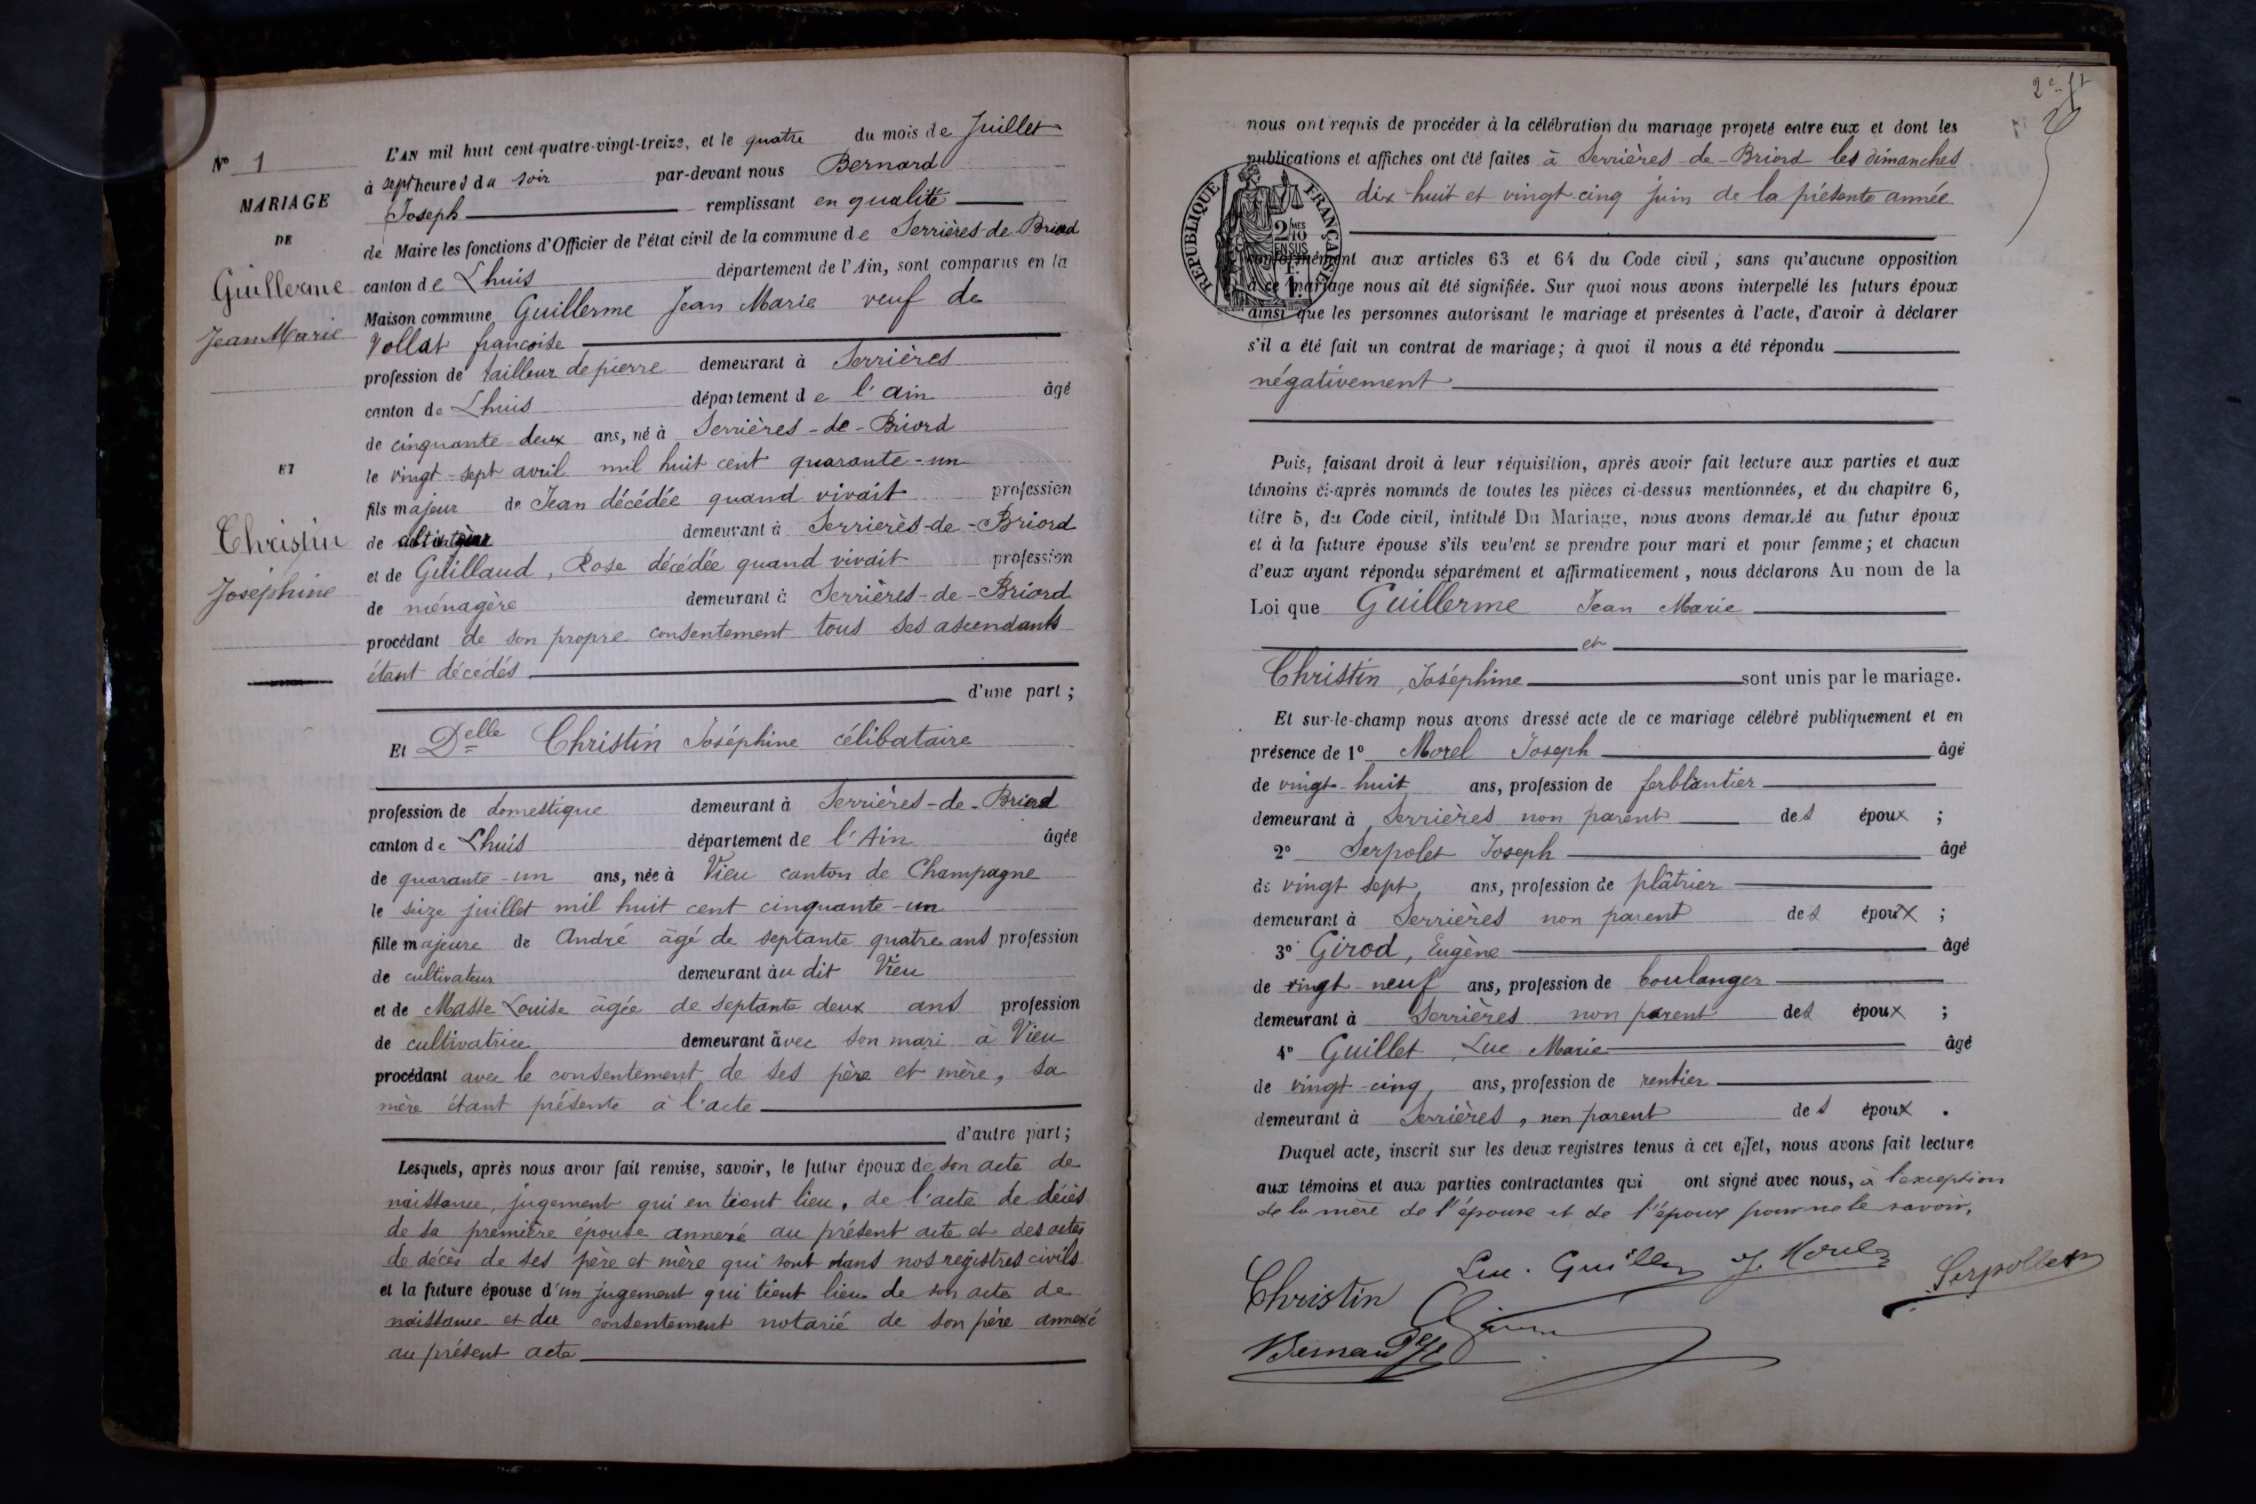 N° 1
MARIAGE
DE
Guillerme
Jean Marie
ET
Christin
Joséphine
L'AN mil huit cent quatre-vingt-treize, et le quatre du mois de Juillet
à sept heures du soir par-devant nous Bernard
Joseph remplissant en qualité
de Maire les fonctions d'Officier de l'état civil de la commune de Serrières-de-Briord
canton de Lhuis département de l'Ain, sont comparus en la
Maison commune Guillerme Jean Marie veuf de
Vollat francoise
profession de tailleur de pierre demeurant à Serrières
canton de Lhuis département de l'ain âgé
de cinquante deux ans, né à Serrières-de-Briord
le vingt-sept avril mil huit cent quarante-un
fils majeur de Jean décédée quand vivait profession
de demeurant à Serrierès-de-Briord
et de Guillaud, Rose décédée quand vivait profession
de ménagère demeurant à Serrières-de-Briord
procédant de son propre consentement tous ses ascendants
étant décédés
d'une part ;
Et Delle Christin Joséphine célibataire
profession de domestique demeurant à Serrières-de-Briord
canton de Lhuis département de l'Ain âgée
de quarante-un ans, née à Vieu canton de Champagne
le seize juillet mil huit cent cinquante-un
fille majeure de André âgé de septante quatre ans profession
de cultivateur demeurant àu dit Vieu
et de Masse Louise âgée de septante deux ans profession
de cultivatrice demeurant avec son mari à Vieu
procédant avec le consentement de ses père et mère, sa
mère étant présente à l'acte
d'autre part ;
Lesquels, après nous avoir fait remise, savoir, le futur époux de son acte de
naissance, jugement qui en tient lieu, de l'acte de décès
de sa première épouse annexé au présent acte et des actes
de décès de ses père et mère qui sont dans nos registres civils
et la future épouse d'un jugement qui tient lieu de son acte de
naissance et du consentement notarié de son père annexé
au présent acte
2e ft
nous ont requis de procéder à la célébration du mariage projeté entre eux et dont les
publications et affiches ont été faites à Serrières-de-Briord les dimanches
dix-huit et vingt-cinq juin de la présente année
RÉPUBLIQUE FRANÇAISE
2/10 MES
EN SUS
1 F.
conformément aux articles 63 et 64 du Code civil, sans qu'aucune opposition
à ce mariage nous ait été signifiée. Sur quoi nous avons interpellé les futurs époux
ainsi que les personnes autorisant le mariage et présentes à l'acte, d'avoir à déclarer
s'il a été fait un contrat de mariage ; à quoi il nous a été répondu
négativement
Puis, faisant droit à leur réquisition, après avoir fait lecture aux parties et aux
témoins ci-après nommés de toutes les pièces ci-dessus mentionnées, et du chapitre 6,
titre 5, du Code civil, intitulé Du Mariage, nous avons demandé au futur époux
et à la future épouse s'ils veulent se prendre pour mari et pour femme ; et chacun
d'eux ayant répondu séparément et affirmativement, nous déclarons Au nom de la
Loi que Guillerme Jean Marie
et
Christin, Joséphine sont unis par le mariage.
Et sur-le-champ nous avons dressé acte de ce mariage célébré publiquement et en
présence de 1° Morel Joseph âgé
de vingt-huit ans, profession de ferblantier
demeurant à Serrières non parent des époux ;
2° Serpolet Joseph âgé
de vingt sept ans, profession de plâtrier
demeurant à Serrières non parent des époux ;
3° Girod, Eugène âgé
de vingt-neuf ans, profession de boulanger
demeurant à Serrières non parent des époux ;
4° Guillet Luc Marie âgé
de vingt-cinq ans, profession de rentier
demeurant à Serrières, non parent des époux.
Duquel acte, inscrit sur les deux registres tenus à cet effet, nous avons fait lecture
aux témoins et aux parties contractantes qui ont signé avec nous, à l'exception
de la mère de l'épouse et de l'époux pour ne le savoir.
Luc. Guillet J. Morel Serpollet
Christin
Bernard Jh